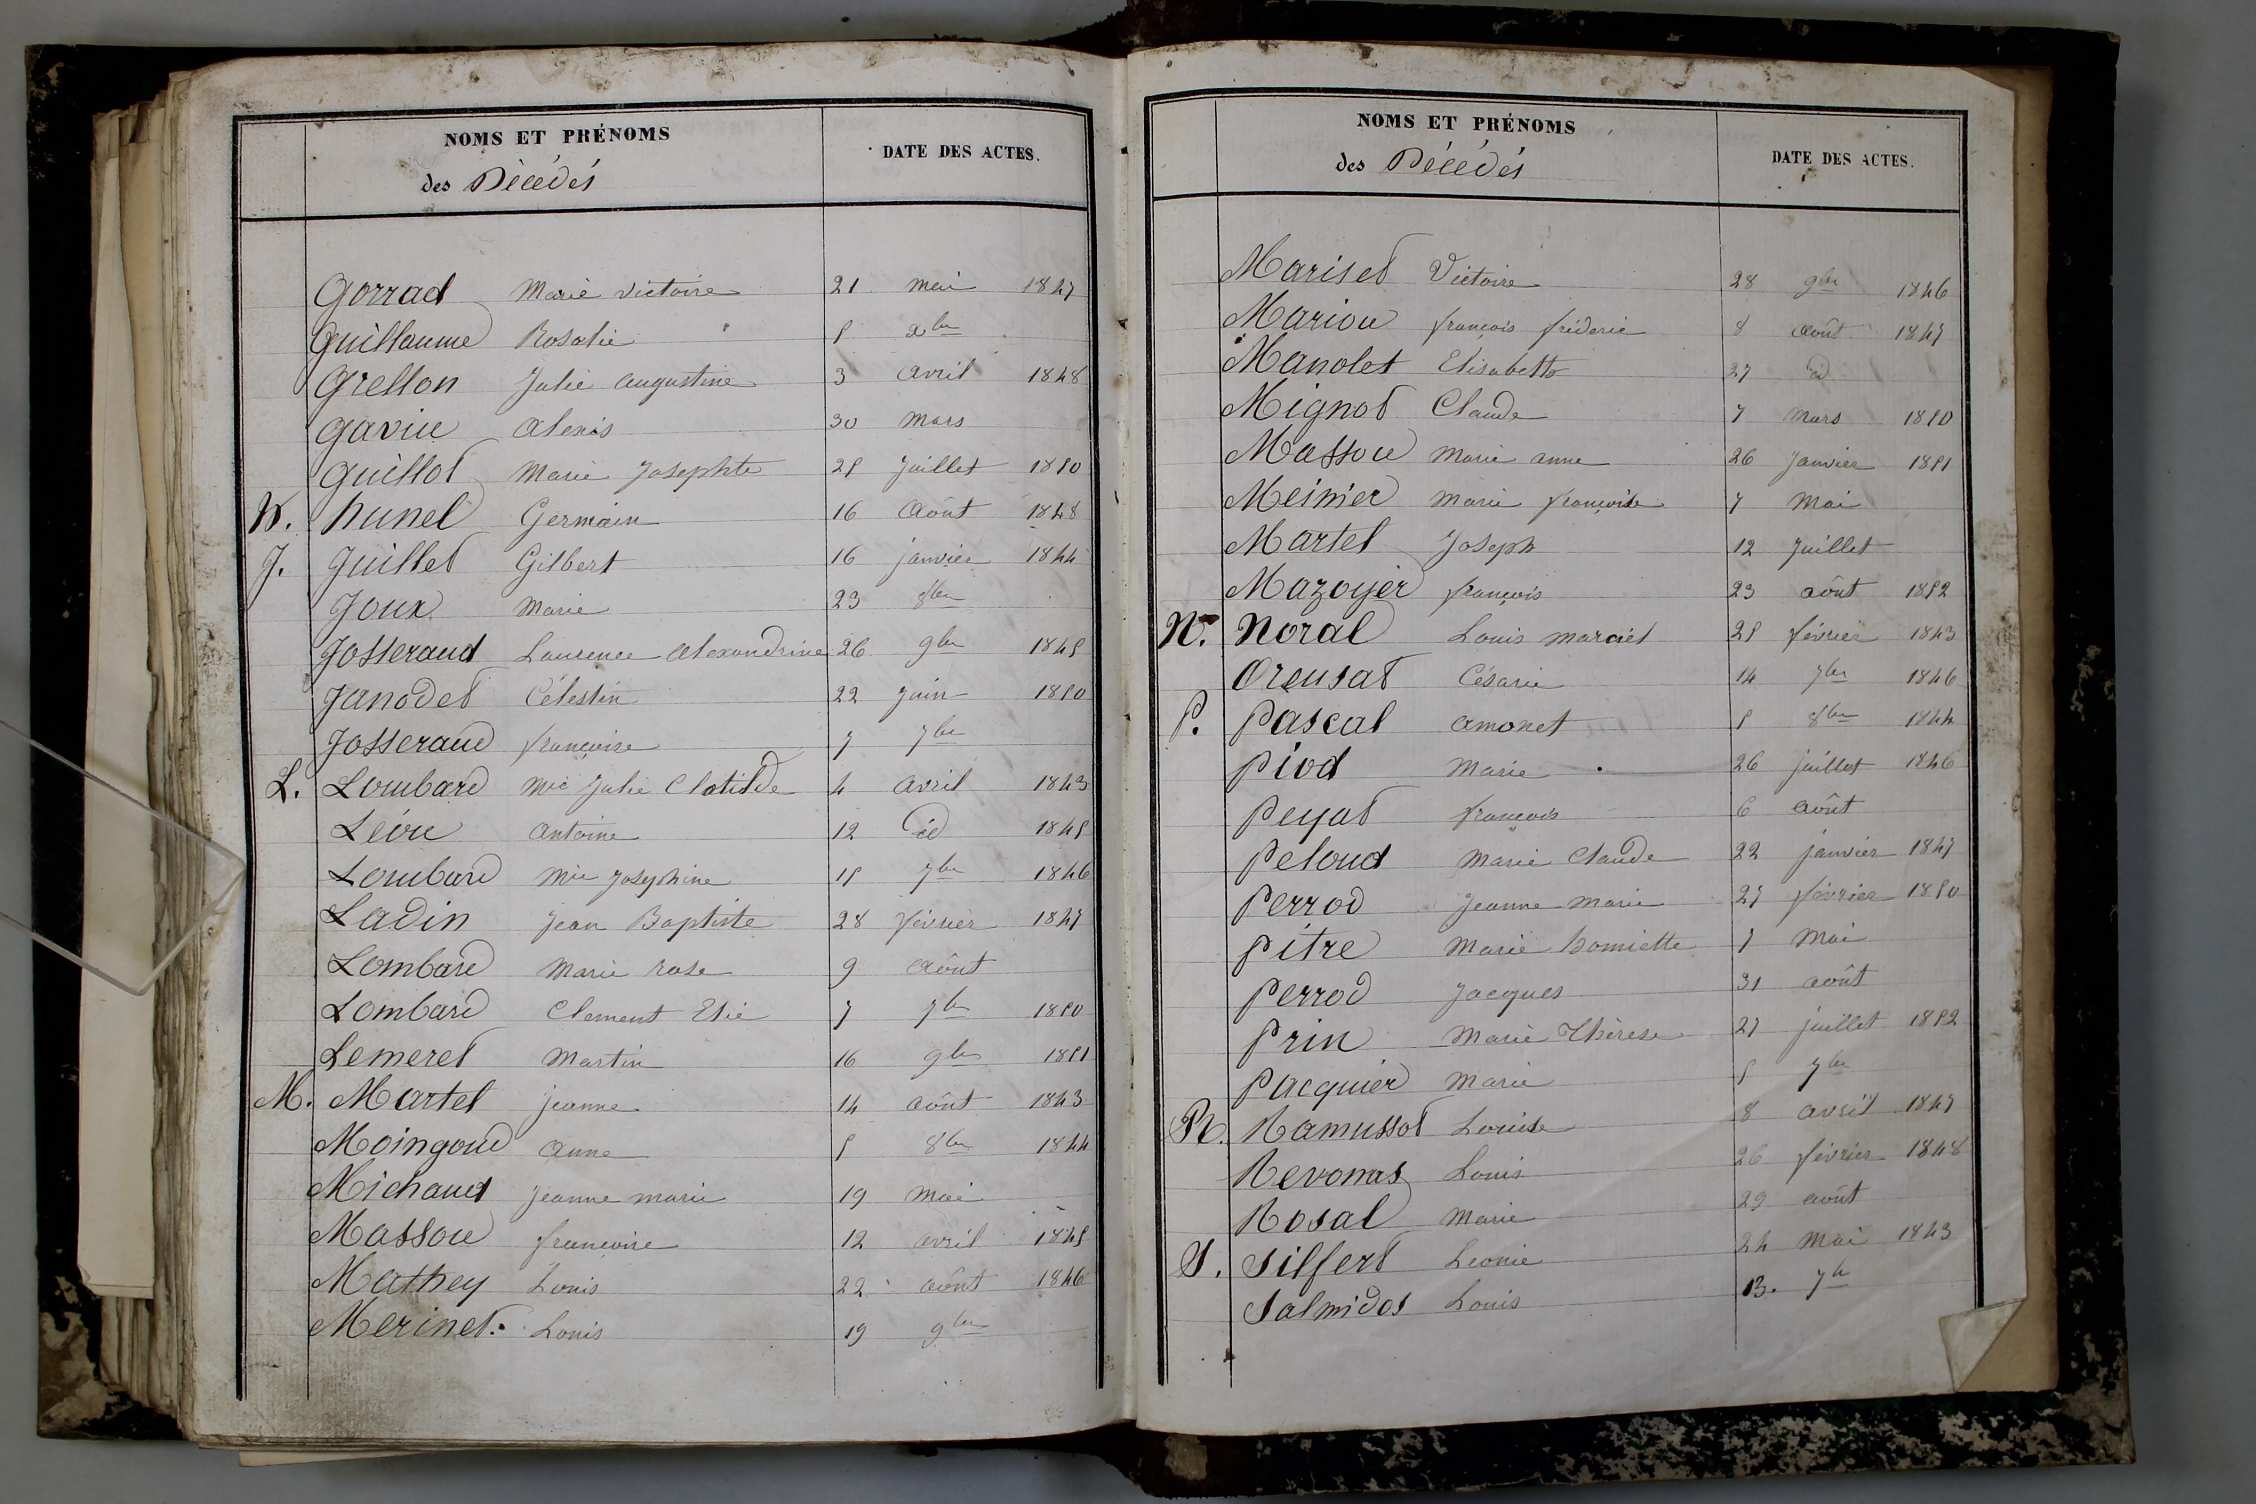 NOMS ET PRÉNOMS
DATE DES ACTES.
des Décédés
Gorrad Marie Victoire 21 mai 1847
Guillaume Rosalie 5 xbre
Grellon Julie augustine 3 avril 1848
gavin alexis 30 mars
guillot Marie Josephte 25 Juillet 1850
H. hunel Germain 16 Août 1848
J. Juillet Gilbert 16 janvier 1844
Joux Marie 23 8bre
Josserand Laurence alexandrine 26 9bre 1845
Janodet Célestin 22 Juin 1850
Josserand françoise 7 7bre
L. Lombard Mie Julie Clotilde 4 avril 1843
Léon antoine 12 id 1845
Lombard Mie Josephine 15 7bre 1846
Ladin Jean Baptiste 28 février 1847
Lombard Marie rose 9 août
Lombard Clement Elie 7 7bre 1850
Lemeret Martin 16 9bre 1851
M. Martel jeanne 14 août 1843
Moingoud anne 5 8bre 1844
Michaud jeanne marie 19 mai
Masson françoise 12 avril 1845
Mathey Louis 22 août 1846
Merinet. Louis 19 9bre
NOMS ET PRÉNOMS
DATE DES ACTES.
des Décédés
Mariset Victoire 28 9bre 1846
Marion françois fréderic 8 août 1847
Manolet Elisabeth 27 id
Mignot Claude 7 mars 1850
Masson Marie anne 26 Janvier 1851
Meinier Marie françoise 7 Mai
Martel Joseph 12 Juillet
Mazoyer françois 23 août 1852
N. Noral Louis marciel 25 février 1843
Oreusat Césarie 14 7bre 1846
P. Pascal amonet 5 8bre 1844
Piod Marie 26 juillet 1846
Peyat françois 6 août
Peloud Marie Claude 22 janvier 1847
Perrod Jeanne marie 27 février 1850
Pitre Marie 7 Mai
Perrod Jacques 31 août
Prin Marie Thérèse 27 juillet 1852
Pacquier Marie 5 7bre
R. Ramussot Louise 8 avril 1847
Revonas Louis 26 février 1848
Rosal Marie 29 août
S. Silfert Leonie 24 Mai 1843
Salmidos Louis 13. 7b